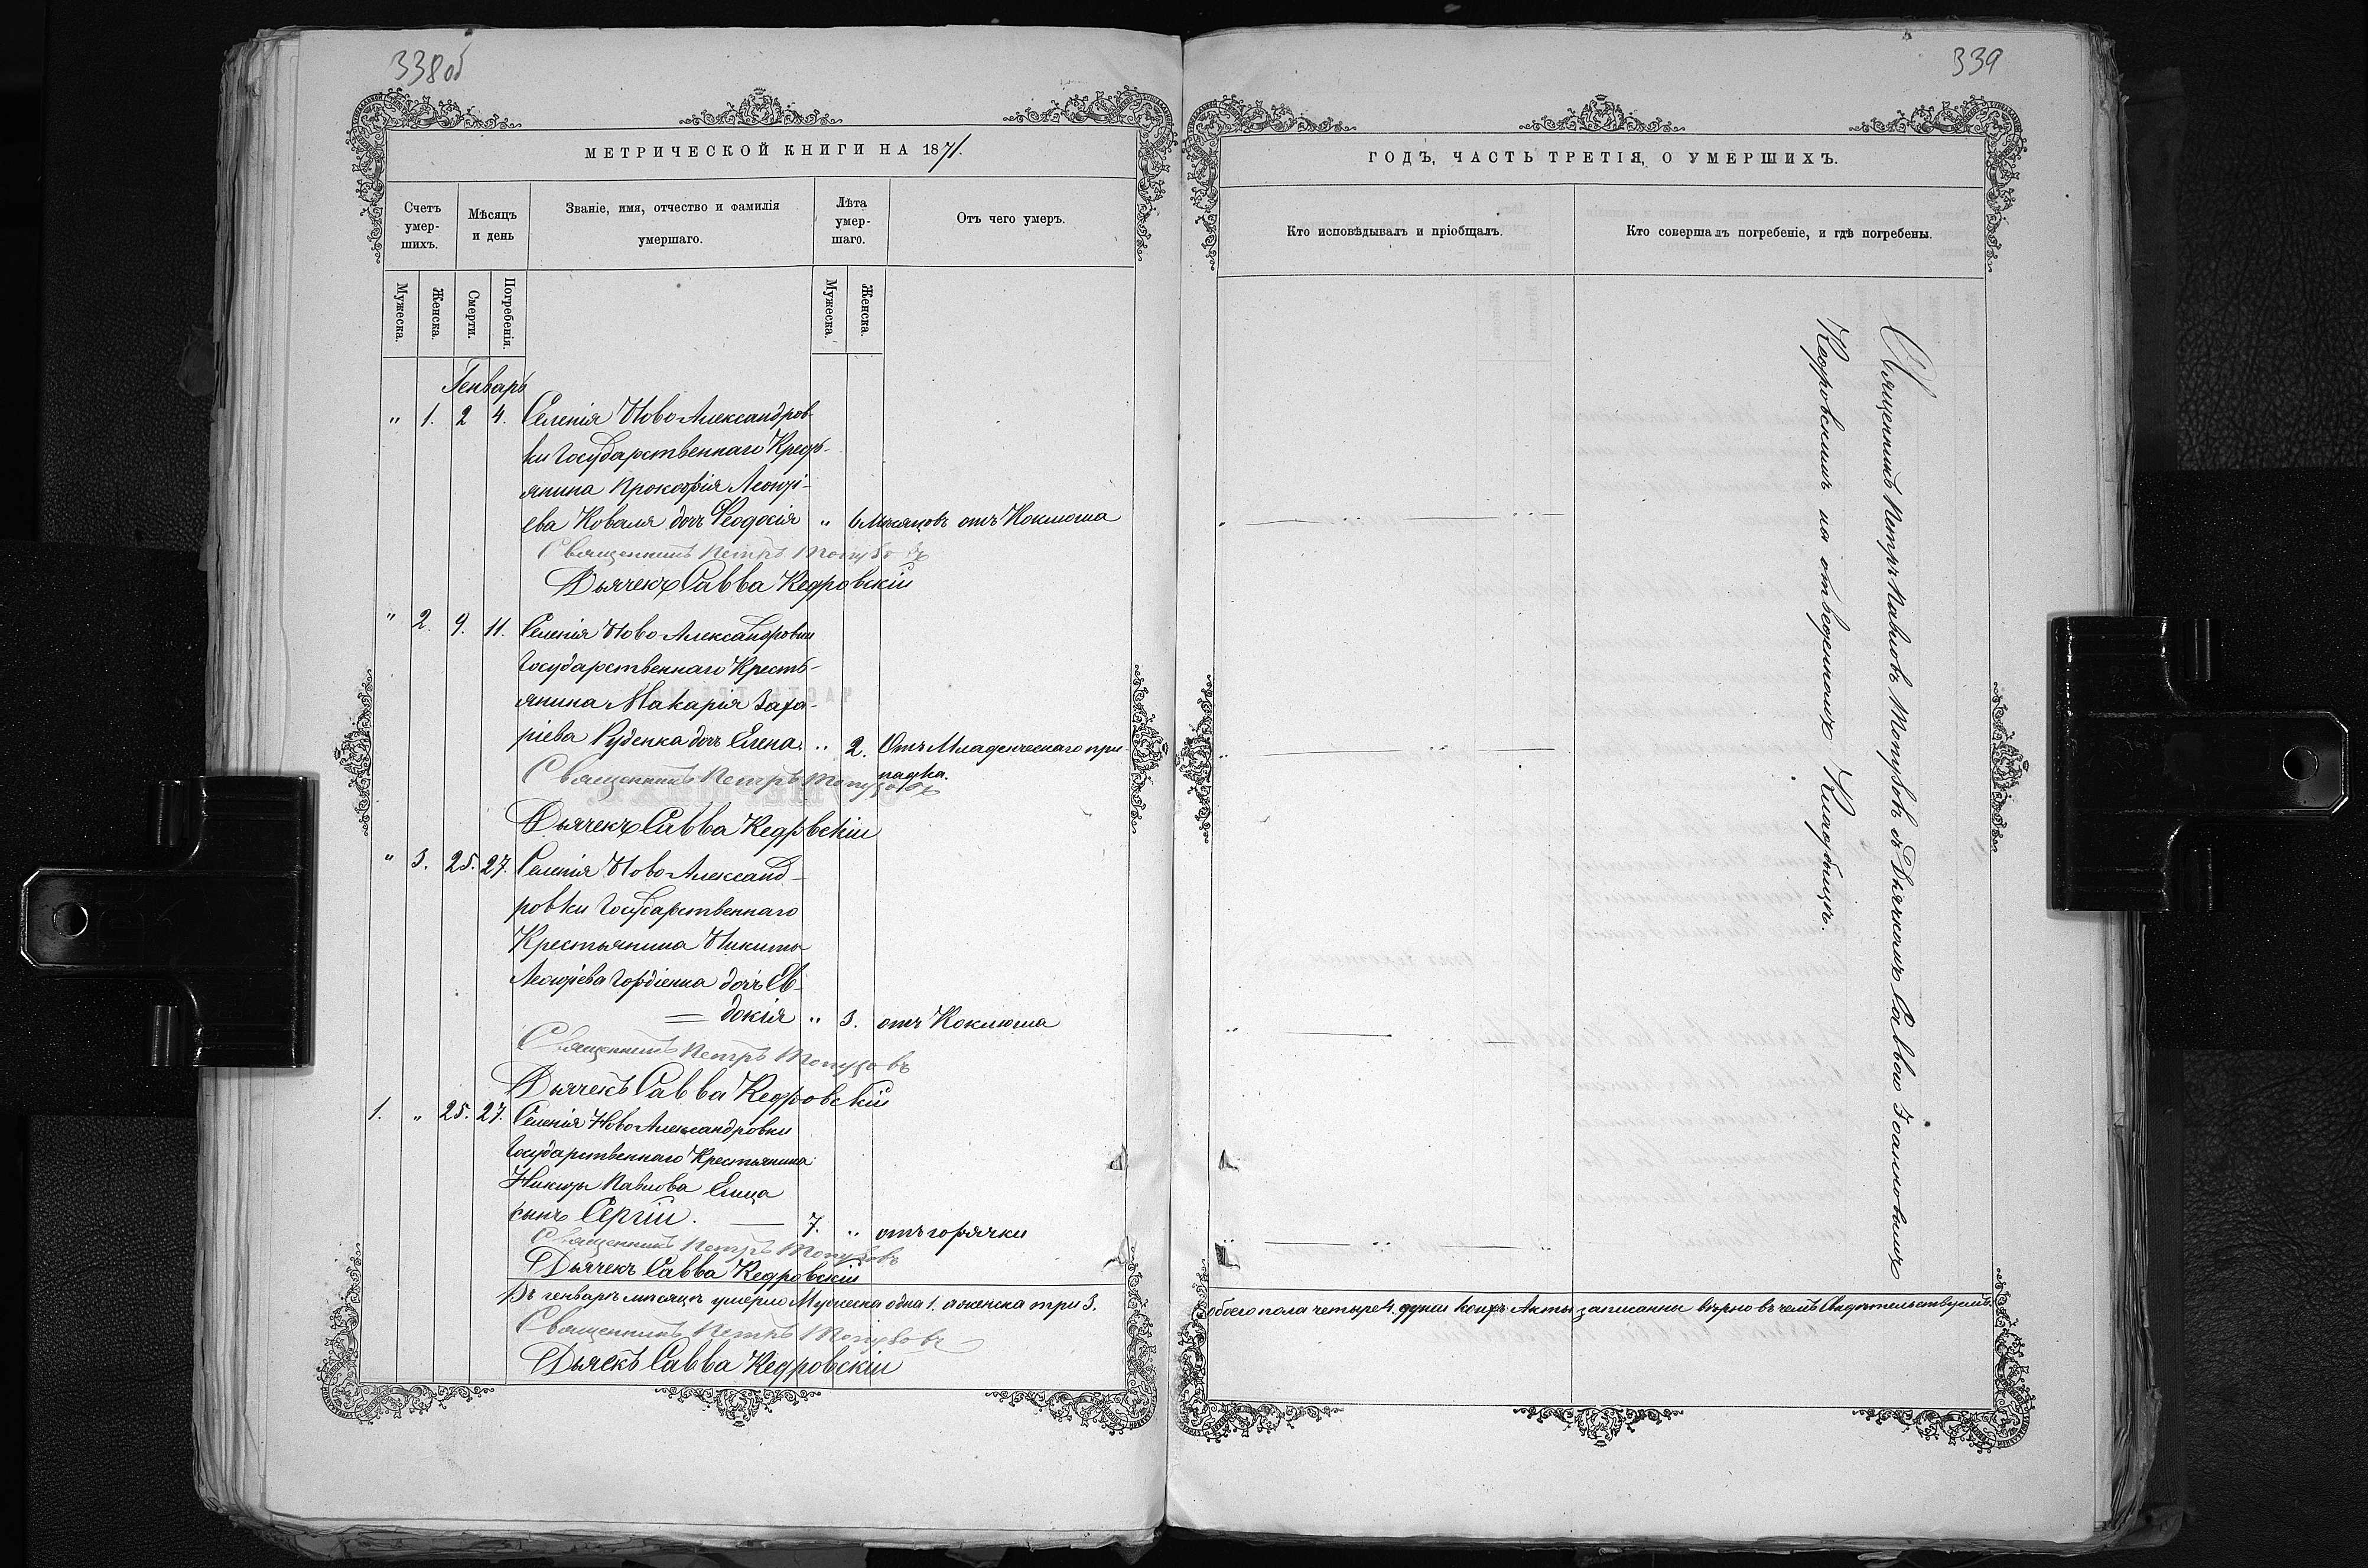 338об
МЕТРИЧЕСКОЙ КНИГИ НА 1871.
Счетъ умер-шихъ.
Мѣсяцъ и день
Званіе, имя, отчество и фамилія
умершаго.
Лѣта умер-шаго.
Отъ чего умеръ.
Мужеска.
Женска.
Смерти.
Погребенія.
Мужеска.
Женска.
Генварь
" 1. 2 4. Селенія Ново Александров-
ки Государственнаго Кресть-
янина Прокофія Леонті-
ева Коваля дочь Ѳеодосія " 6 Мѣсяцовъ отъ Коклюша
Священникъ Петръ
Дьячекъ Савва Кедровскій
" 2. 9. 11. Селенія Ново Александровки
Государственнаго Кресть-
янина Макарія Заха-
ріева Руденка дочь Елена. " 2. Отъ Младенческаго при-
падка.
Священникъ Петръ
Дьячекъ Савва Кедрвскій
" 3. 25. 27. Селенія Ново Александ-
ровки Государственнаго
Крестьянина Никиты
Гордіенка дочь Ев-
докія " 3. отъ Коклюша
Священникъ Петръ
Дьячекъ Савва Кедровскій
1. " 25. 27. Селенія Ново Александровки
Государственнаго Крестьянина
Павлова
сынъ Сергій. — 7. " отъ горячки
Священникъ Петръ
Дьячекъ Савва Кедровскій
Въ генварѣ мѣсяцѣ умерло Мужеска одна 1. а женска три 3.
Священникъ Петръ
Дьячекъ Савва Кедровскій
339
ГОДЪ, ЧАСТЬ ТРЕТІЯ, О УМЕРШИХЪ.
Кто исповѣдывалъ и пріобщалъ.
Кто совершалъ погребеніе, и гдѣ погребены.
Священникъ Петръ Павловъ съ Дьячкомъ Саввою Іоанновымъ
Кедровскимъ на отведенномъ Кладбищѣ.
обоего пола четыре 4. души коихъ Акты записанны вѣрно въ чемъ Свидѣтельствуемъ.